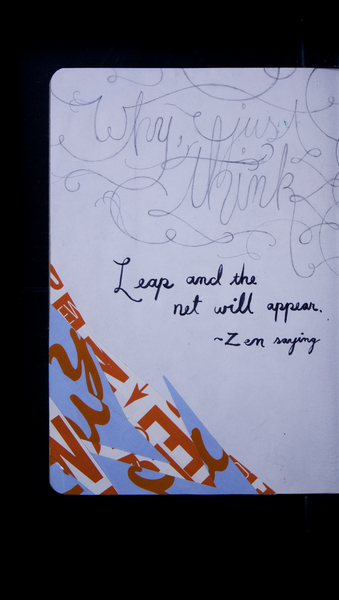 Why, just
think
Leap and the
net will appear.
~Zen saying